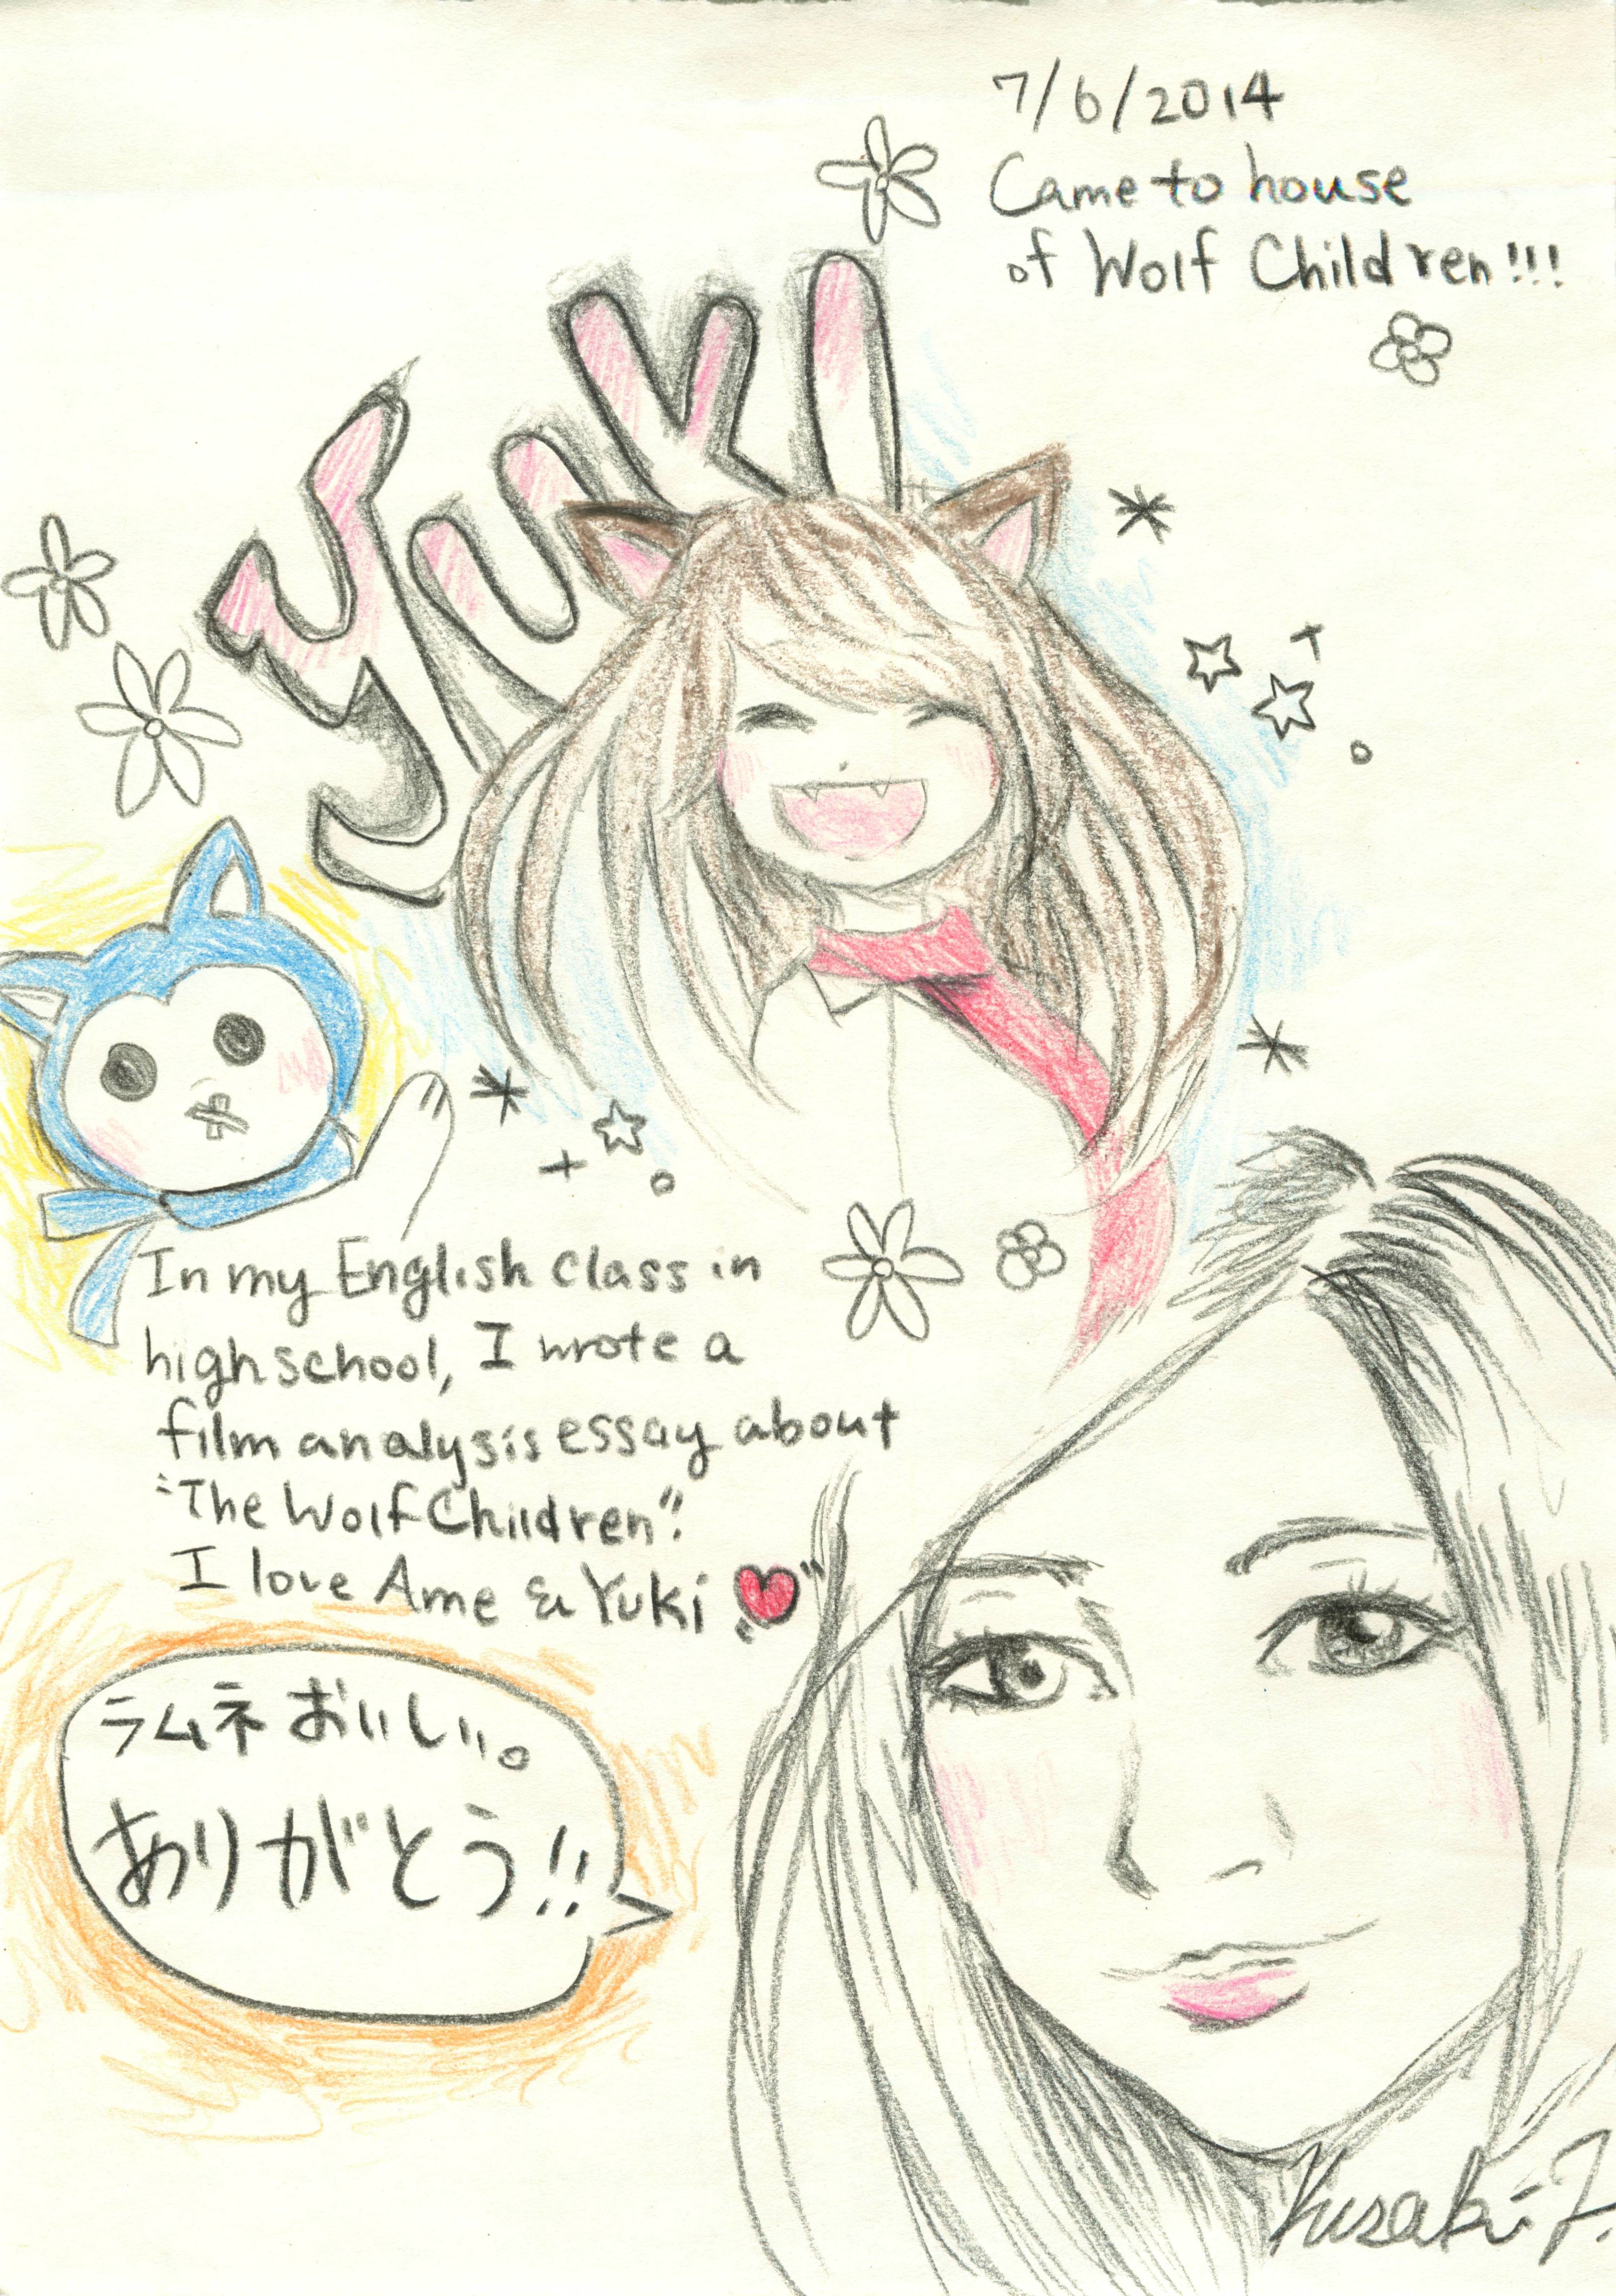 7/6/2014
Came to house
of Wolf Children!!!
YUKI
In my English class in
high school, I wrote a
film analysis essay about
"The Wolf Children".
I love Ame & Yuki
ラムネおいしい。
ありがとう!!